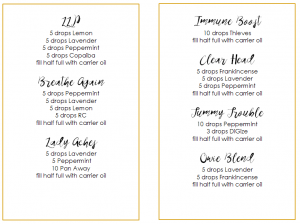 LLP
5 drops Lemon
5 drops Lavender
5 drops Peppermint
5 drops Copaiba
fill half full with carrier oil
Breathe Again
5 drops Peppermint
5 drops Lavender
5 drops Lemon
5 drops RC
fill half full with carrier oil
Lady Aches
5 drops Lavender
5 Peppermint
10 Pan Away
fill half full with carrier oil
Immune Boost
10 drops Thieves
fill half full with carrier oil
Clear Head
5 drops Frankincense
5 drops Lavender
5 drops Peppermint
fill half full with carrier oil
Tummy Trouble
10 drops Peppermint
3 drops DiGize
fill half full with carrier oil
Owie Blend
5 drops Lavender
5 drops Frankincense
fill half full with carrier oil